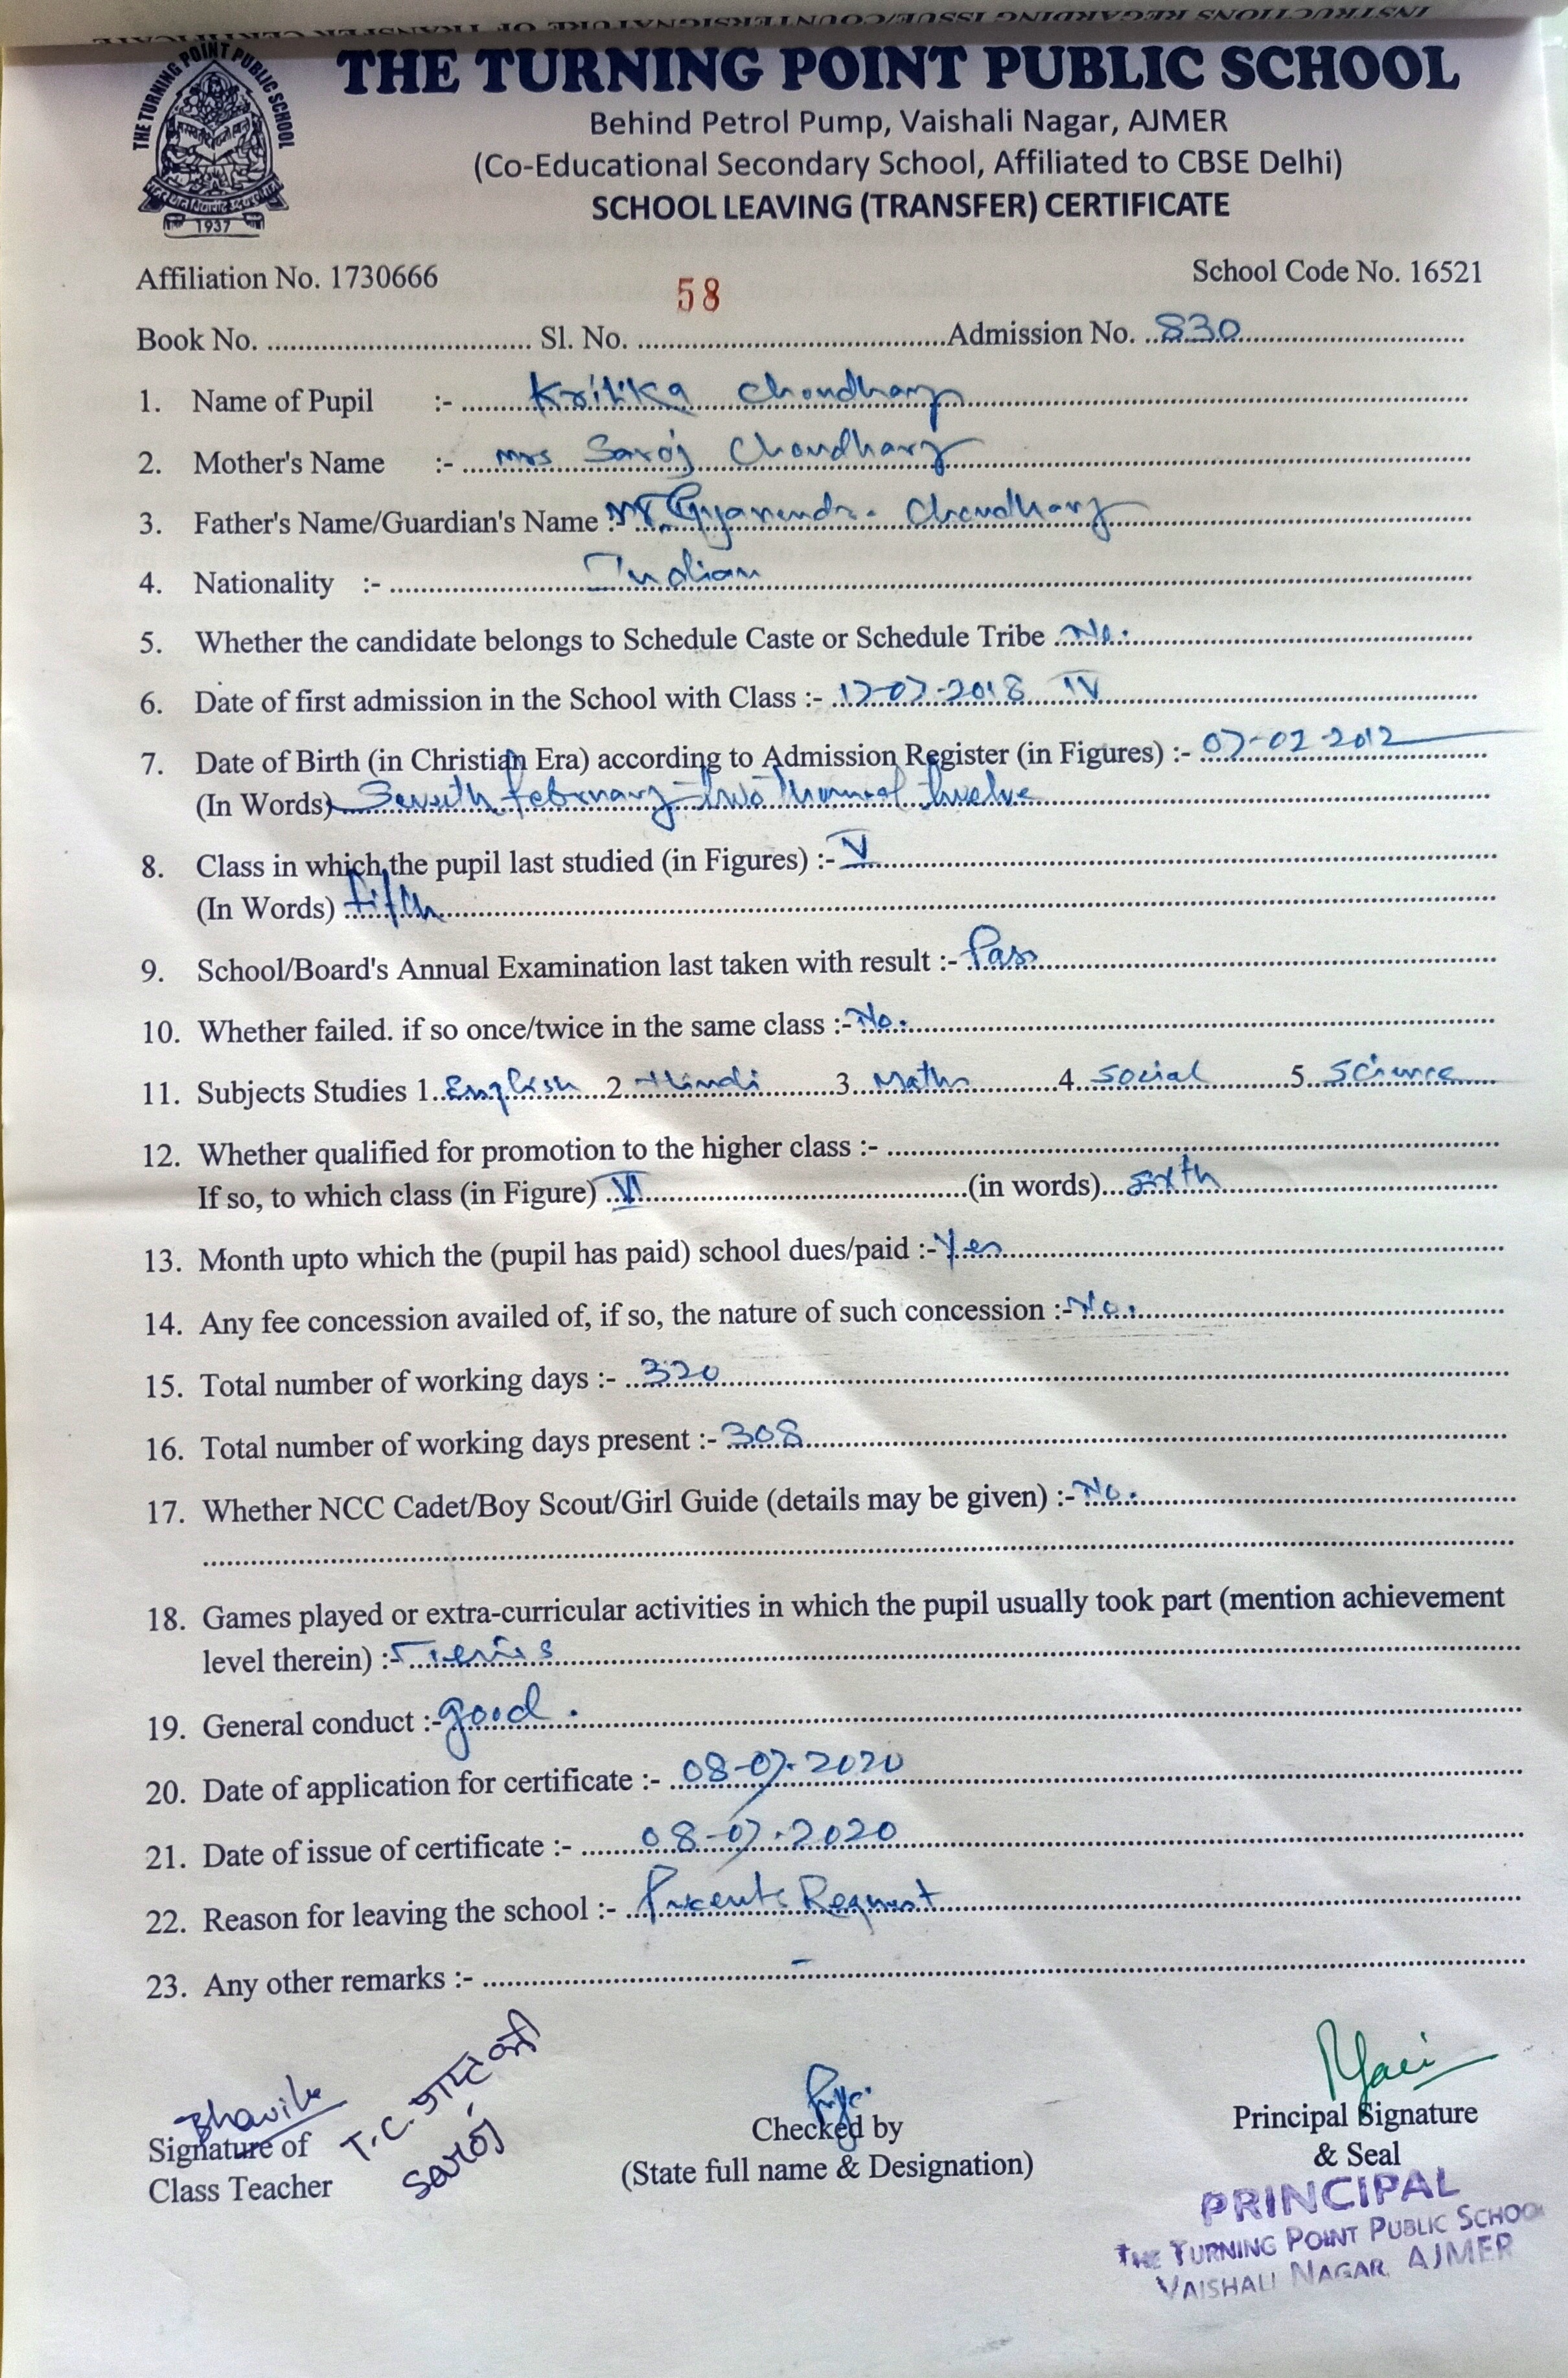 INSTRUCTIONS REGARDING ISSUE/COUNTERSIGNATURE OF TRANSFER CERTIFICATE
THE TURNING POINT PUBLIC SCHOOL
1937
THE TURNING POINT PUBLIC SCHOOL
Behind Petrol Pump, Vaishali Nagar, AJMER
(Co-Educational Secondary School, Affiliated to CBSE Delhi)
SCHOOL LEAVING (TRANSFER) CERTIFICATE
Affiliation No. 1730666 School Code No. 16521
58
Book No. Sl. No. Admission No. 830
1. Name of Pupil :- Kritika Choudhary
2. Mother's Name :- Mrs Saroj Choudhary
3. Father's Name/Guardian's Name :- Mr. Gyanendra Choudhary
4. Nationality :- Indian
5. Whether the candidate belongs to Schedule Caste or Schedule Tribe No.
6. Date of first admission in the School with Class :- 17-07-2018 IV
7. Date of Birth (in Christian Era) according to Admission Register (in Figures) :- 07-02-2012
(In Words) Seventh February Two Thousand Twelve
8. Class in which the pupil last studied (in Figures) :- V
(In Words) fifth
9. School/Board's Annual Examination last taken with result :- Pass
10. Whether failed. if so once/twice in the same class :- No.
11. Subjects Studies 1. English 2. Hindi 3. Maths 4. Social 5. Science
12. Whether qualified for promotion to the higher class :-
If so, to which class (in Figure) VI (in words) sixth
13. Month upto which the (pupil has paid) school dues/paid :- Yes
14. Any fee concession availed of, if so, the nature of such concession :- No.
15. Total number of working days :- 320
16. Total number of working days present :- 308
17. Whether NCC Cadet/Boy Scout/Girl Guide (details may be given) :- No.
18. Games played or extra-curricular activities in which the pupil usually took part (mention achievement
level therein) :- Tenis
19. General conduct :- good.
20. Date of application for certificate :- 08-07-2020
21. Date of issue of certificate :- 08-07-2020
22. Reason for leaving the school :- Parents Request
23. Any other remarks :- -
Bhavika
T.C. प्राप्त की
Saroj
Signature of
Class Teacher
Checked by
(State full name & Designation)
Principal Signature
& Seal
PRINCIPAL
THE TURNING POINT PUBLIC SCHOOL
VAISHALI NAGAR, AJMER